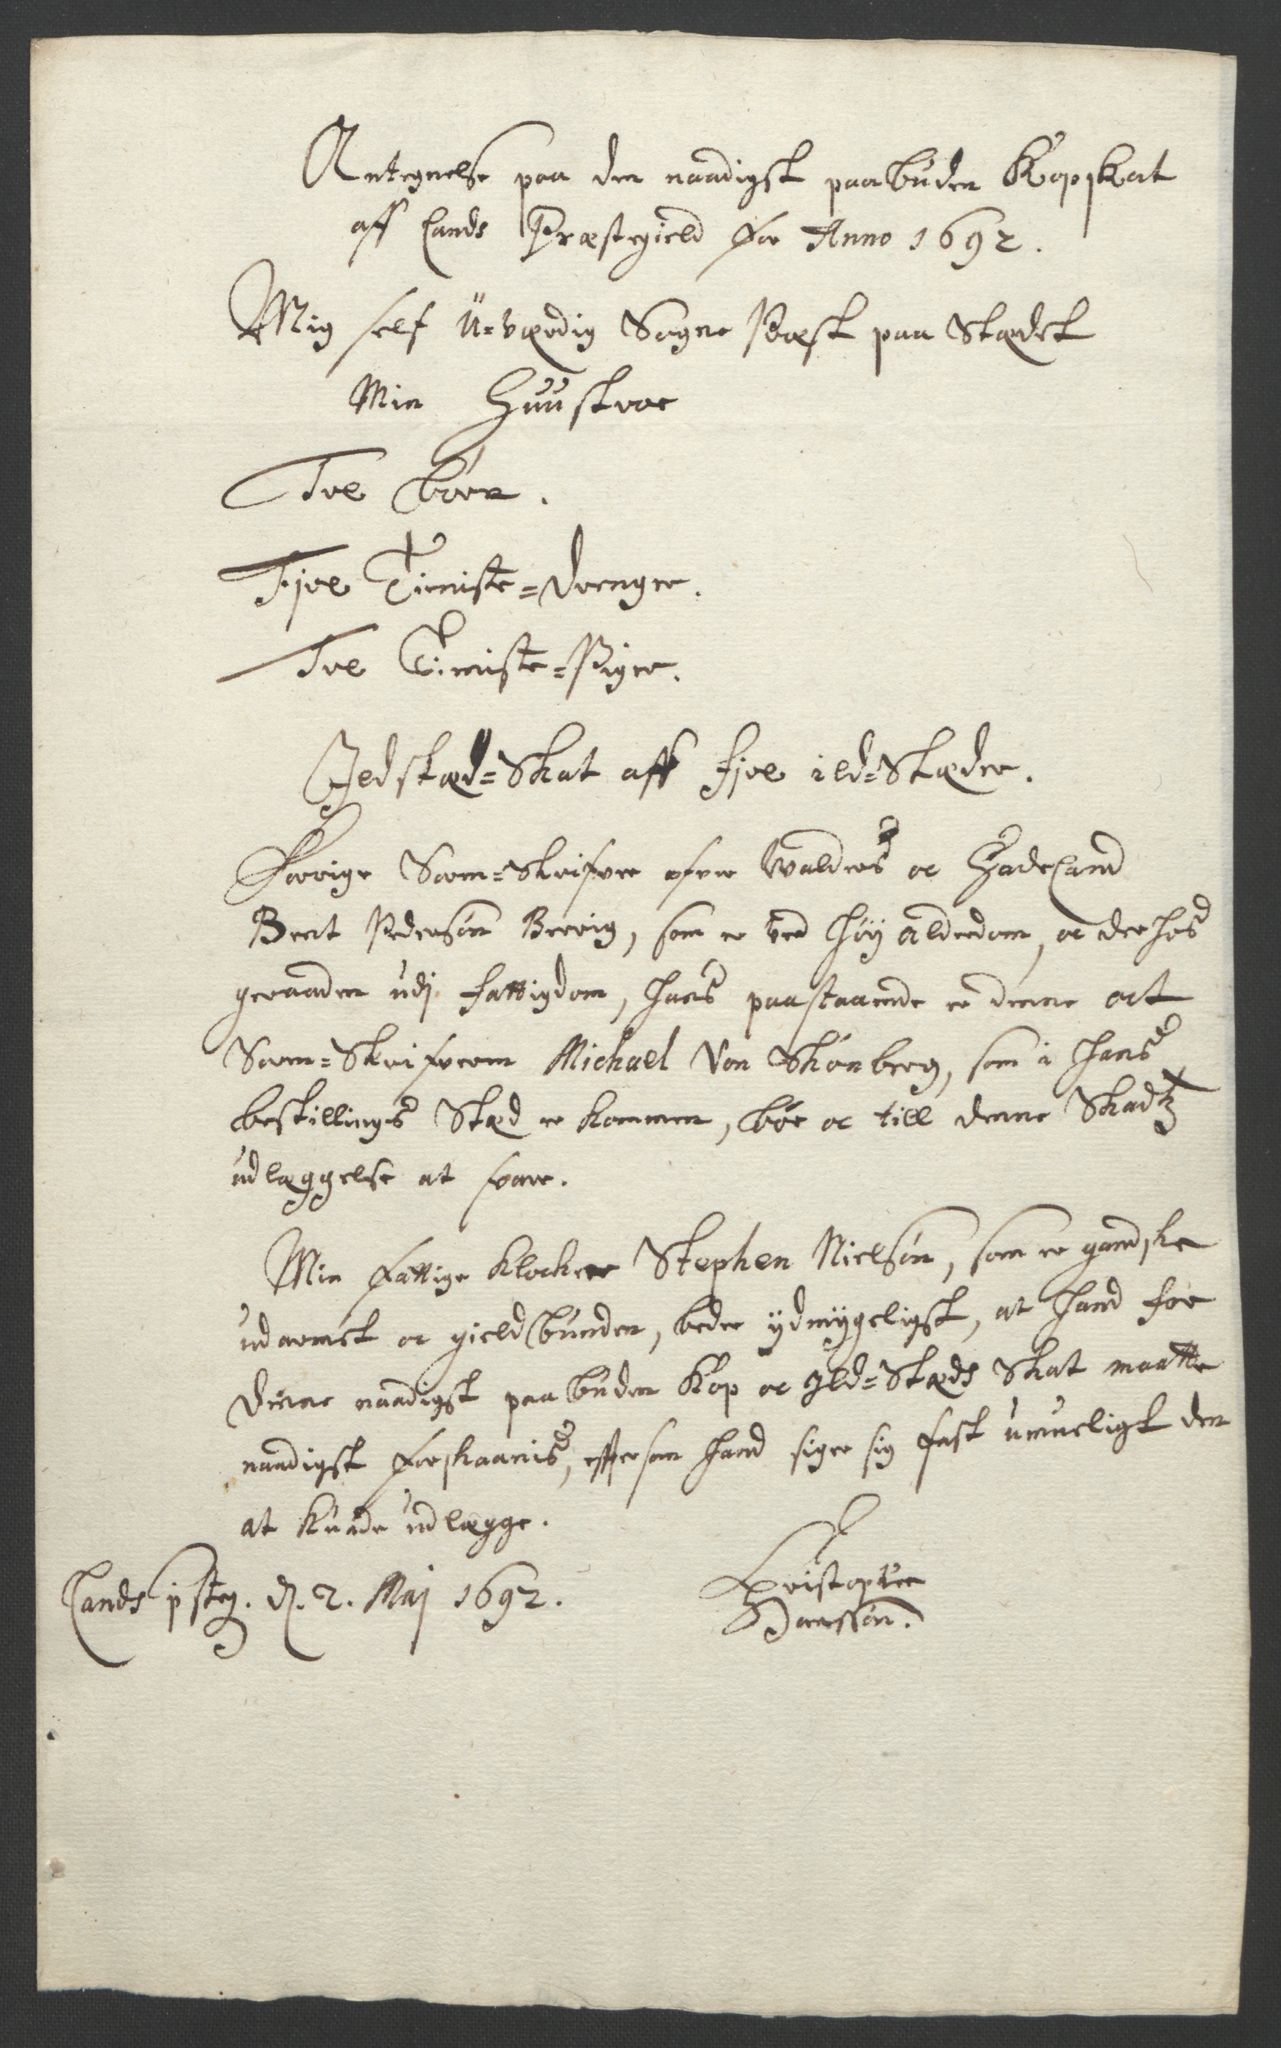 Antegnelse paa den naadigst paabuden Kopskat
aff Lands Præstegield for Anno 1692.
Mig self U-værdig Sogne Præst paa Stædet
Min Huustroe
Toe börn.
Fjre Tieniste-drenge.
Toe Tieniste-Piger.
Ildstæd-Skat aff fire ild-Stæder.
Forrige Soren-Skrifver ofver Walders oc Hadeland
Bent Pedersön Brevig, som er ved höy alderdom, oc der hos
geraaden udj fattigdom, hans paastaaende er denne at
Soren-Skrifveren Michael Von Skönberg, som i hans
bestillings Stæd er kommen, bör oc till denne Skadtz
udlæggelse at svare.
Min fattige klocker Stephen Nielsön, som er gandske
udarmet oc gieldbunden, beder ydmygeligst, at hand for
denne naadigst paabuden Kop oc Ild-Stæds Skat maatte
naadigst forskaanis, effersom hand siger sig fast umueligt den
at kunde udlægge.
Lands pstg. d. 2. Maj 1692.
Christopher